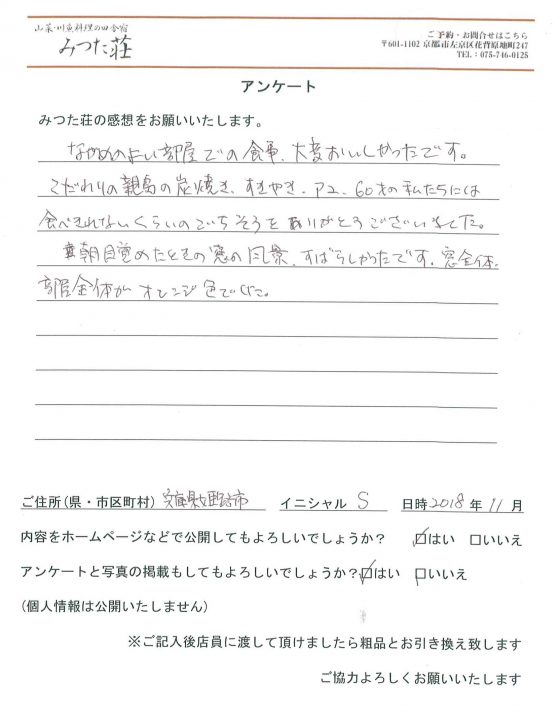 山菜・川魚料理の田舎宿
みつた荘
ご予約・お問合せはこちら
〒601-1102 京都市左京区花背原地町247
TEL：075-746-0125
アンケート
みつた荘の感想をお願いいたします。
ながめのよい部屋での食事、大変おいしかったです。
こだわりの親鳥の炭焼き、すきやき、 60才の私たちには
食べきれないくらいのごちそうをありがとうございました。
朝目覚めたときの窓の風景、すばらしかったです。窓全体、
部屋全体がオレンジ色でした。
ご住所(県・市区町村) 兵庫県 市 イニシャル S 日時2018年11月
内容をホームページなどで公開してもよろしいでしょうか？ ☑はい □いいえ
アンケートと写真の掲載もしてもよろしいでしょうか？☑はい □いいえ
(個人情報は公開いたしません)
※ご記入後店員に渡して頂けましたら粗品とお引き換え致します
ご協力よろしくお願いいたします